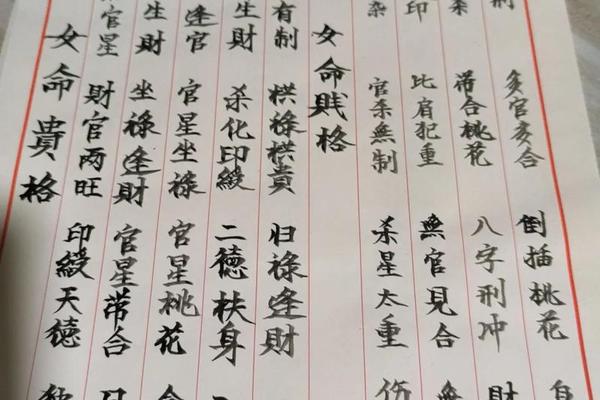 女命貴格
官星 財官兩旺 印綬天德
生財 坐祿逢財 官星帶合
逢官 官星坐祿 官星桃花
生財 杀化印綬 二德扶身
有制 栱祿栱貴 归祿逢財
女命賤格
杂 官杀無制 杀星太重
印 比肩犯重 無官見合
带合桃花 八字刑冲 財
多官多合 倒插桃花